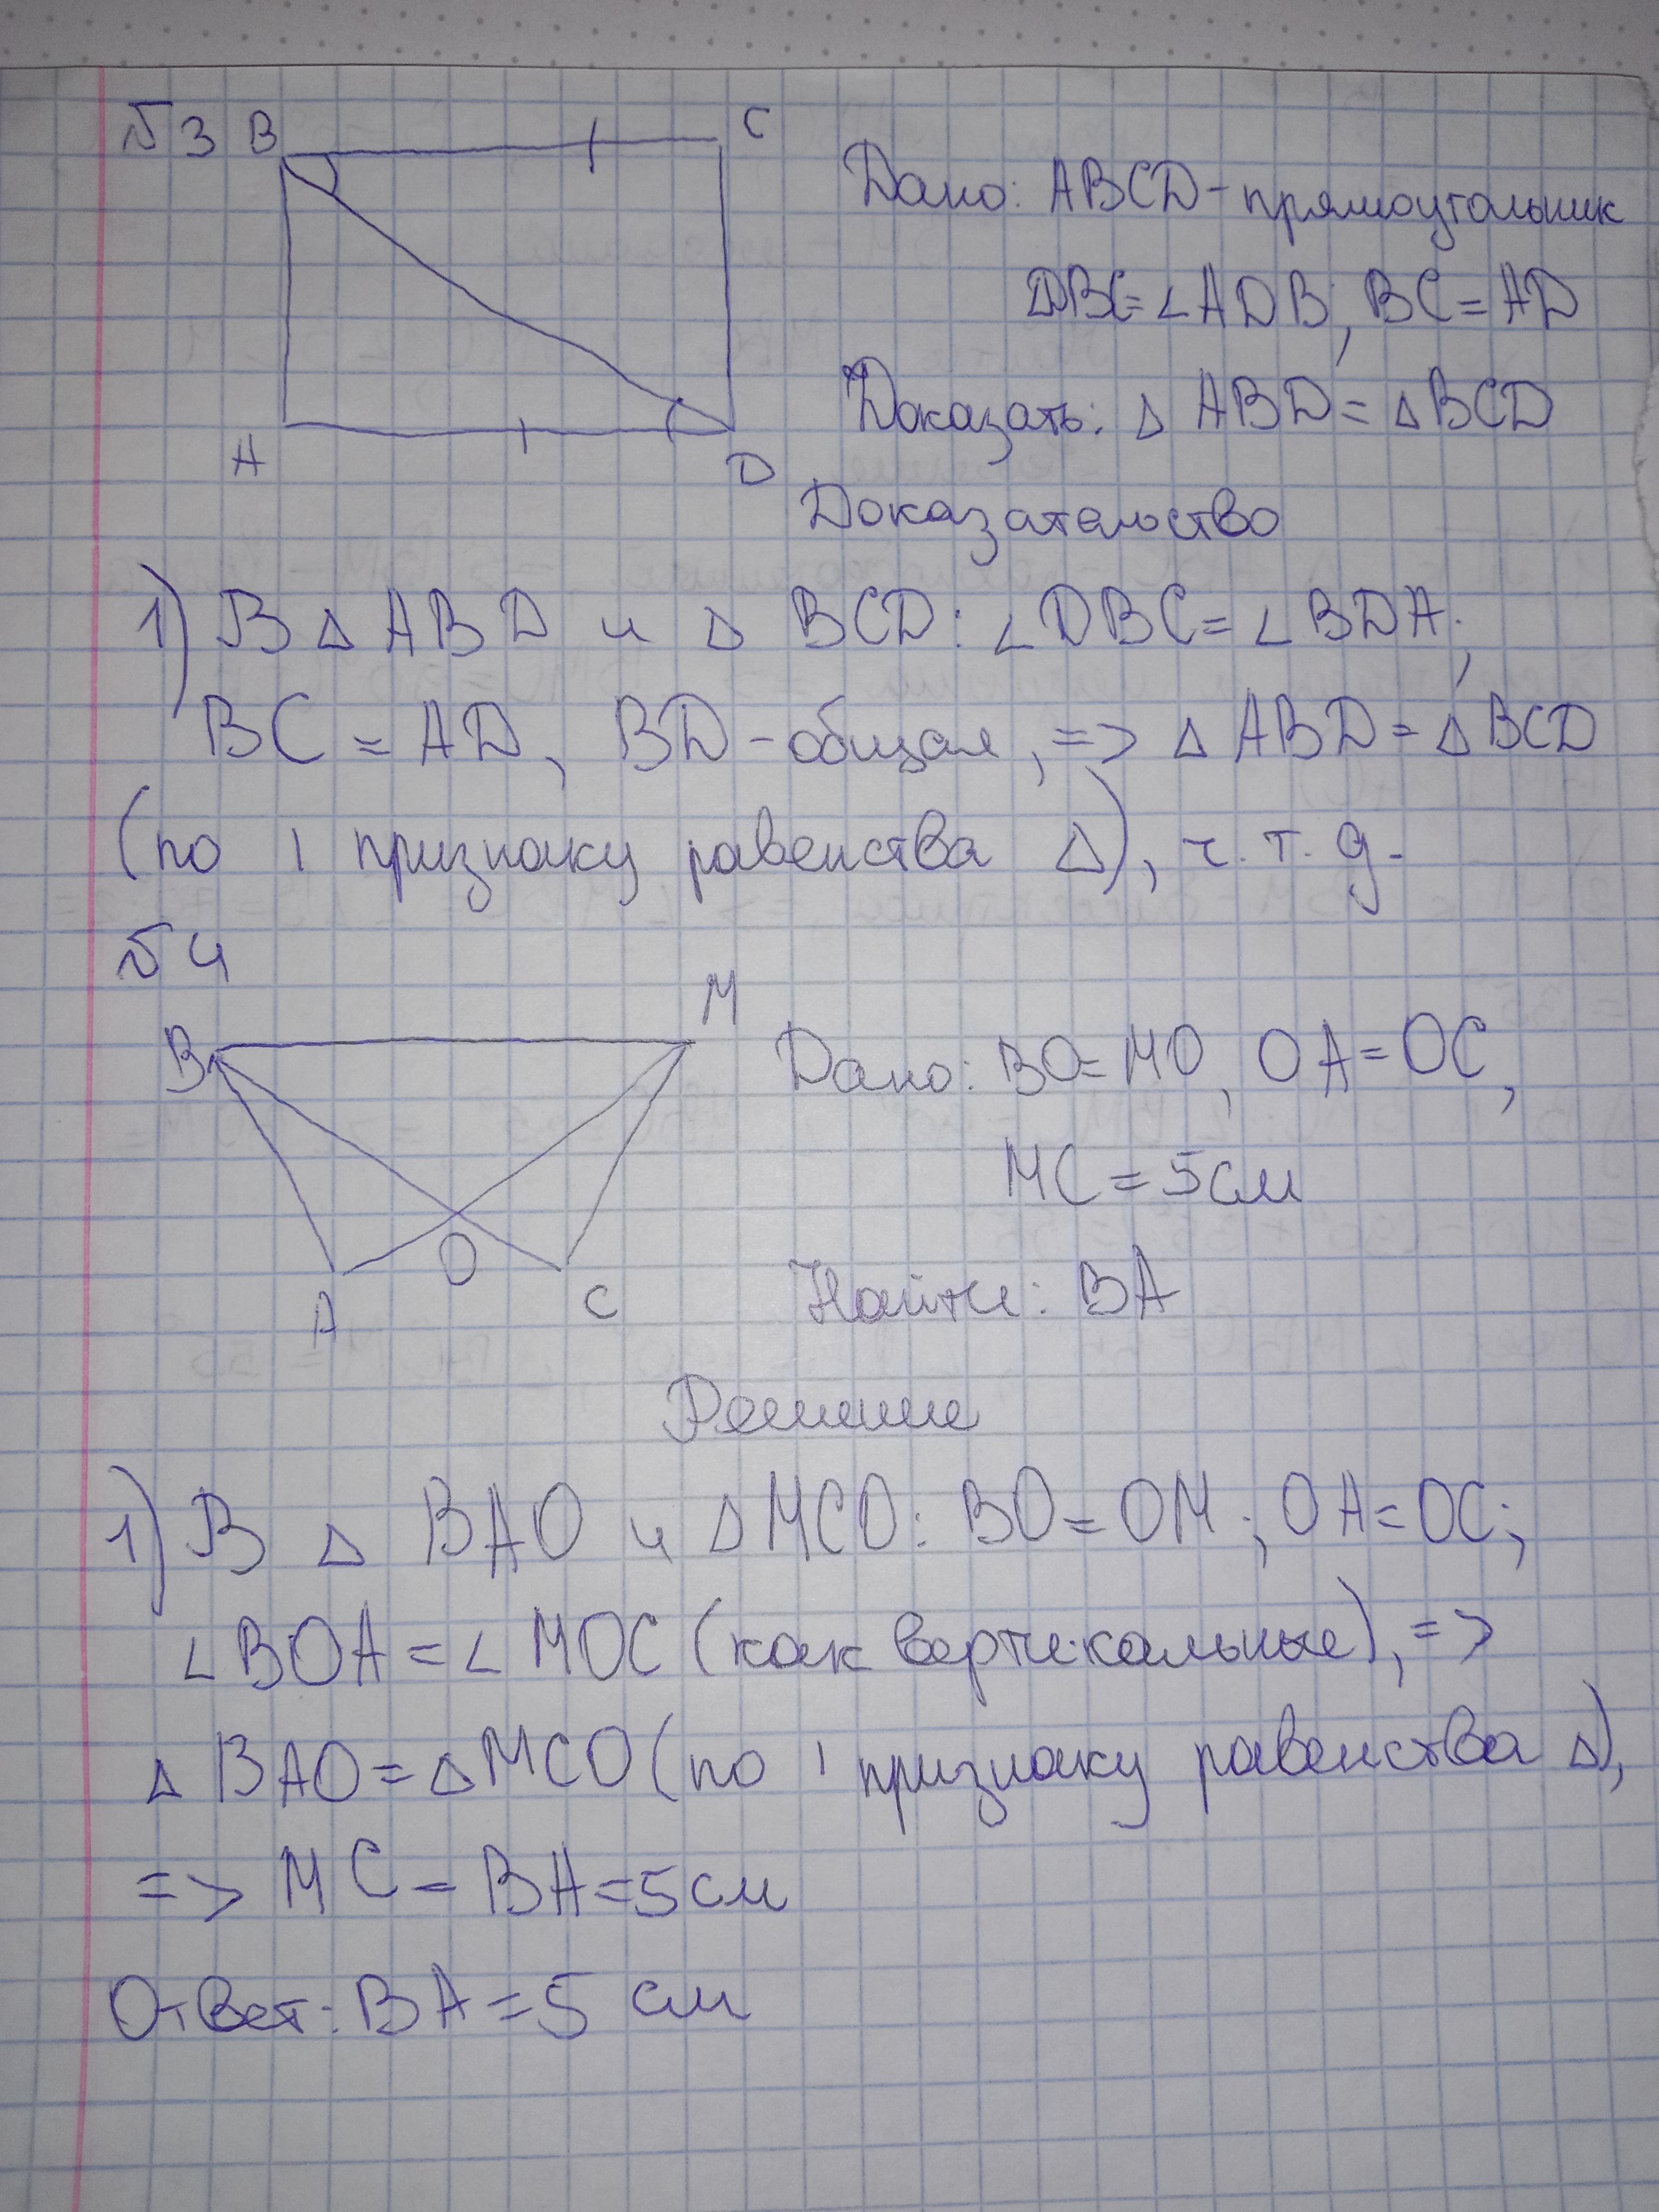 №3 B C
A D
Дано: ABCD - прямоугольник
∠DBC = ∠ADB; BC = AD
Доказать: △ ABD = △ BCD
Доказательство
1) В △ ABD и △ BCD: ∠DBC = ∠BDA;
BC = AD, BD - общая, => △ ABD = △ BCD
(по 1 признаку равенства △), ч. т. д.
№4
B M
A O C
Дано: BO = MO, OA = OC,
MC = 5 см
Найти: BA
Решение
1) В △ BAO и △ MCO: BO = OM; OA = OC;
∠BOA = ∠MOC (как вертикальные), =>
△ BAO = △ MCO (по 1 признаку равенства △),
=> MC = BA = 5 см
Ответ: BA = 5 см